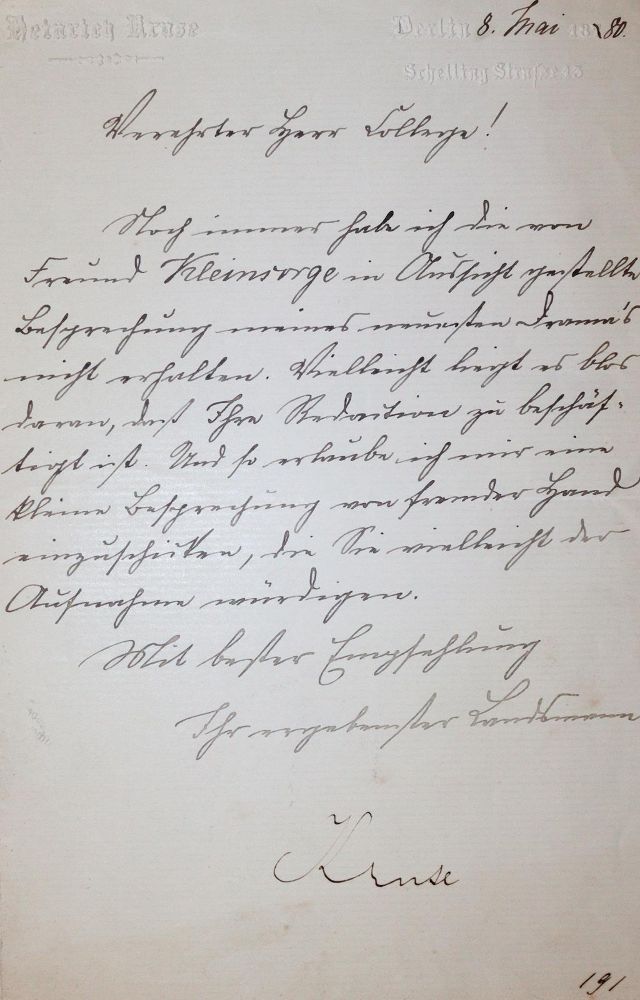 Heinrich Kruse
Berlin 8. Mai 1880.
Schelling Straße 13
Verehrter Herr College!
Noch immer habe ich die von
Freund Kleinsorge in Aussicht gestellte
Besprechung meines neuesten Drama's
nicht erhalten. Vielleicht liegt es blos
daran, daß Ihre Redaction zu beschäf-
tigt ist. Und so erlaube ich mir eine
kleine Besprechung von fremder Hand
einzuschicken, die Sie vielleicht der
Aufnahme würdigen.
Mit bester Empfehlung
Ihr ergebenster Landsmann
Kruse
191